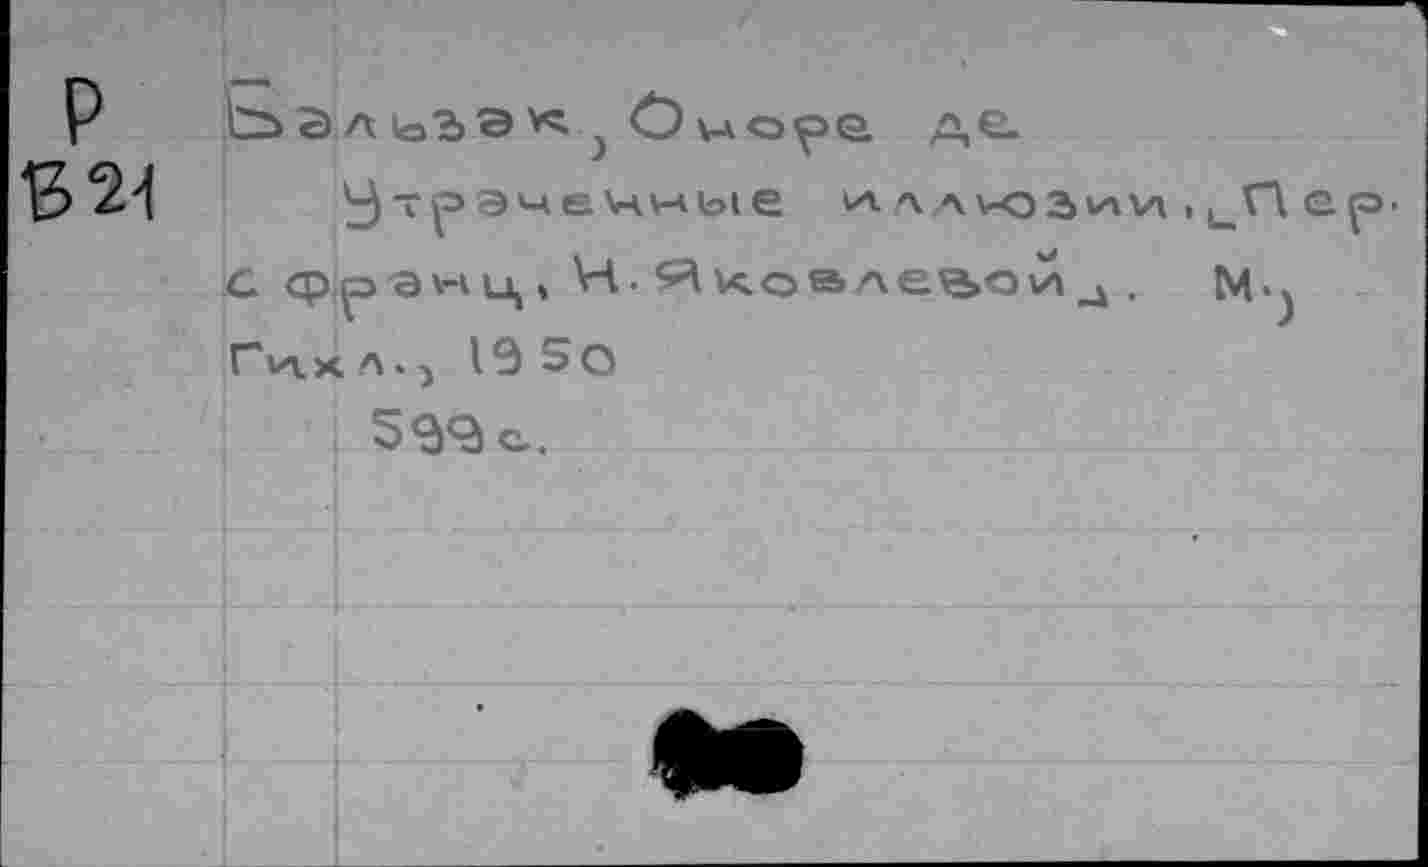 Р Бальзак, Оноре де.
Б21 Утраченные иллюзии. [Пер.
с франц. Н. Яковлевой]. М.,
Гихл., 1950
599 с.